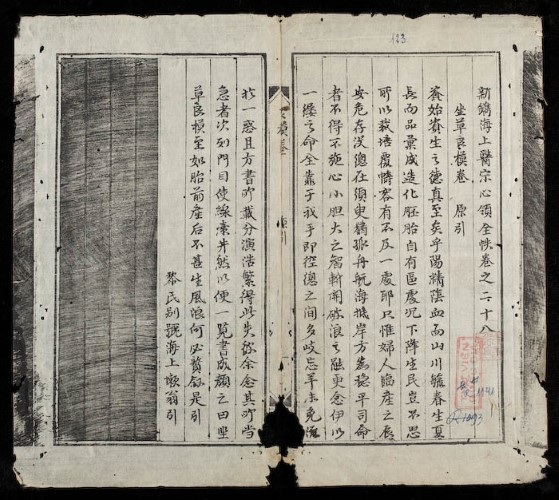 123
新鐫海上醫宗心領全帙卷之二十八
坐草良模卷 原引
資始資生之德真至矣乎陽精陰血而山川毓春生夏
長而品彙成造化胚胎自有區處況下降生民豈不思
所以栽培覆幬容有不及一處耶只惟婦人臨產之辰
安危存沒總在須臾猶孤舟航海抵岸方為穩平司命
者不得不施心小胆大之智斬關破浪之
更念伊以
一縷之命全靠于我手即徑總之間多岐忘羊未免
於一惑且方書所載分演浩繁得此失彼余念其所當
急者次列門目使綠素井然以便一覽書成顏之曰坐
草良模至如胎前產后不甚生風浪何必贅錄是引
黎氏別號海上懶翁引
良模卷
原引